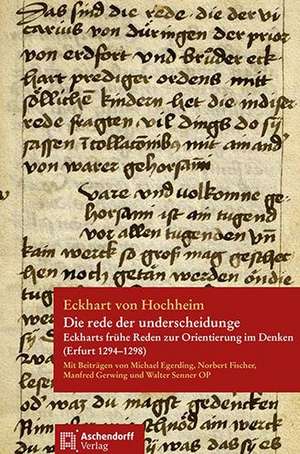 Das sind die rede die der vi
carius von düringen der prior
von erdfort vnd brůder eck
hart prediger ordens mitt
söllichen kindern het die in diser
rede fragten vil dings do sÿ
sassen
von warer gehorsami
Ware vnd volkomne ge
horsami ist ain tugend
vor allen tugenden vn
kain werck so groß mag geschehen
noch getan werden
Eckhart von Hochheim
Die rede der underscheidunge
Eckharts frühe Reden zur Orientierung im Denken
(Erfurt 1294–1298)
Mit Beiträgen von Michael Egerding, Norbert Fischer,
Manfred Gerwing und Walter Senner OP
du magst gedencken
Aschendorff
Verlag
was das sy es